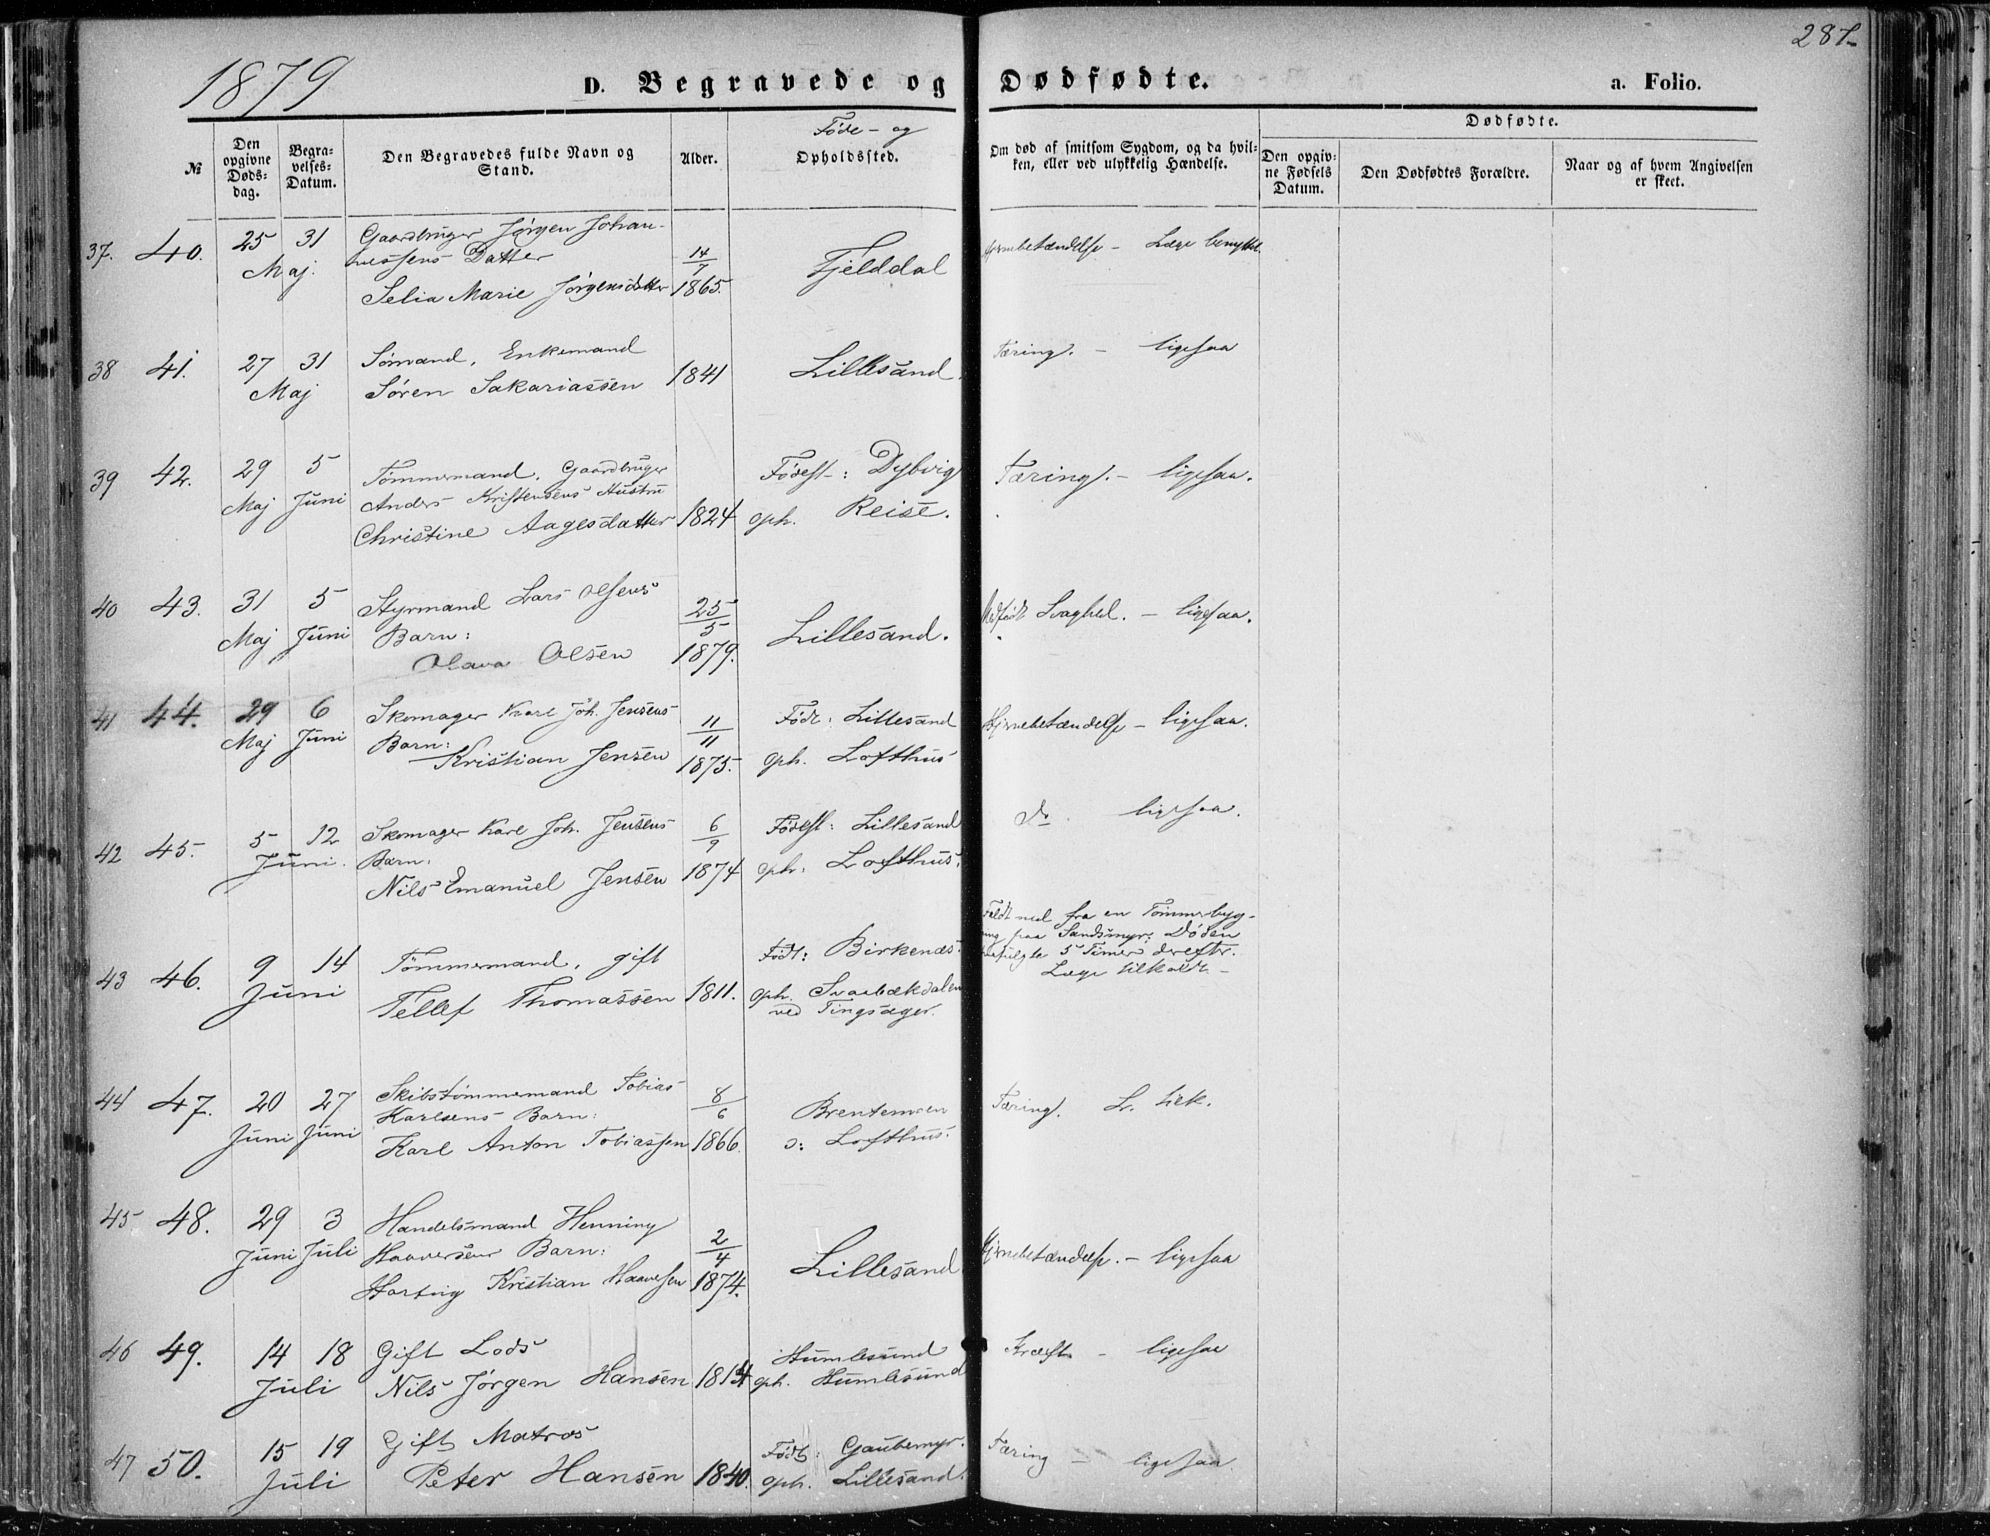 287
1879
D. Begravede og Dødfødte.
a. Folio.
№
Den opgivne Døds-dag.
Begra-velses-Datum.
Den Begravedes fulde Navn og Stand.
Alder.
Føde- og Opholdssted.
Om død af smitsom Sygdom, og da hvil-ken, eller ved ulykkelig Hændelse.
Dødfødte.
Den opgiv-ne Fødsels Datum.
Den Dødfødtes Forældre.
Naar og af hvem Angivelsen er skeet.
37. 40. 25 31 Maj.
Gaardbruger Jørgen Johan-
nessens Datter
Selia Marie Jørgensdatter
14/7 1865.
Fjelddal
Hjernebetændelse – Læge benyttet.
38 41. 27 31 Maj
Sømand, Enkemand
Søren Sakariassen
1841
Lillesand.
Tæring. – ligesaa
39 42. 29 Maj 5 Juni
Tømmermand, Gaardbruger
Anders Kristensens Hustru
Christine Aagesdatter
1824
Fødest-: Dybvig
oph. Reise.
Tæring. – ligesaa.
40 43. 31 Maj 5 Juni
Styrmand Lars Olsens
Barn:
Olava Olsen
25/5 1879.
Lillesand.
Medfødt Svaghed. – ligesaa.
41 44. 29 Maj 6 Juni
Skomager Karl Joh. Jensens
Barn:
Kristian Jensen
11/11 1875.
Født: Lillesand
oph. Lofthus
Hjernebetændelse – ligesaa.
42 45. 5 12 Juni.
Skomager Karl Joh. Jensens
Barn:
Nils Emanuel Jensen
6/9 1874
Fødest: Lillesand
oph: Lofthus.
do ligesaa.
43 46. 9 14 Juni
Tømmermand, gift
Tellef Thomassen
1811.
Født: Birkenæs.
oph. Svarbækdalen
ved Tingsager.
Faldt ned fra en Tømmerbyg-
ning paa Sandsmyr; Døden
paafulgte 5 Timer derefter.
Læge tilkaldt –
44 47. 20 Juni 27 Juni
Skibstømmermand Tobias
Karlsens Barn:
Karl Anton Tobiassen
8/6 1866.
Brentemoen
o: Lofthus.
Tæring. L. tilk.
45 48. 29 Juni 3 Juli
Handelsmand Henning
Haaversens Barn:
Hartvig Kristian Haavesen
2/4 1874.
Lillesand
Hjernebetændelse. – ligesaa
46 49. 14 18 Juli
Gift Lods
Nils Jørgen Hansen
1814
Humlesund
oph. Humlesund
Kræft – ligesaa
47 50. 15 19 Juli
Gift Matros
Peter Hansen
1840.
Født: Gaubemyr.
oph. Lillesand.
Tæring – ligesaa.